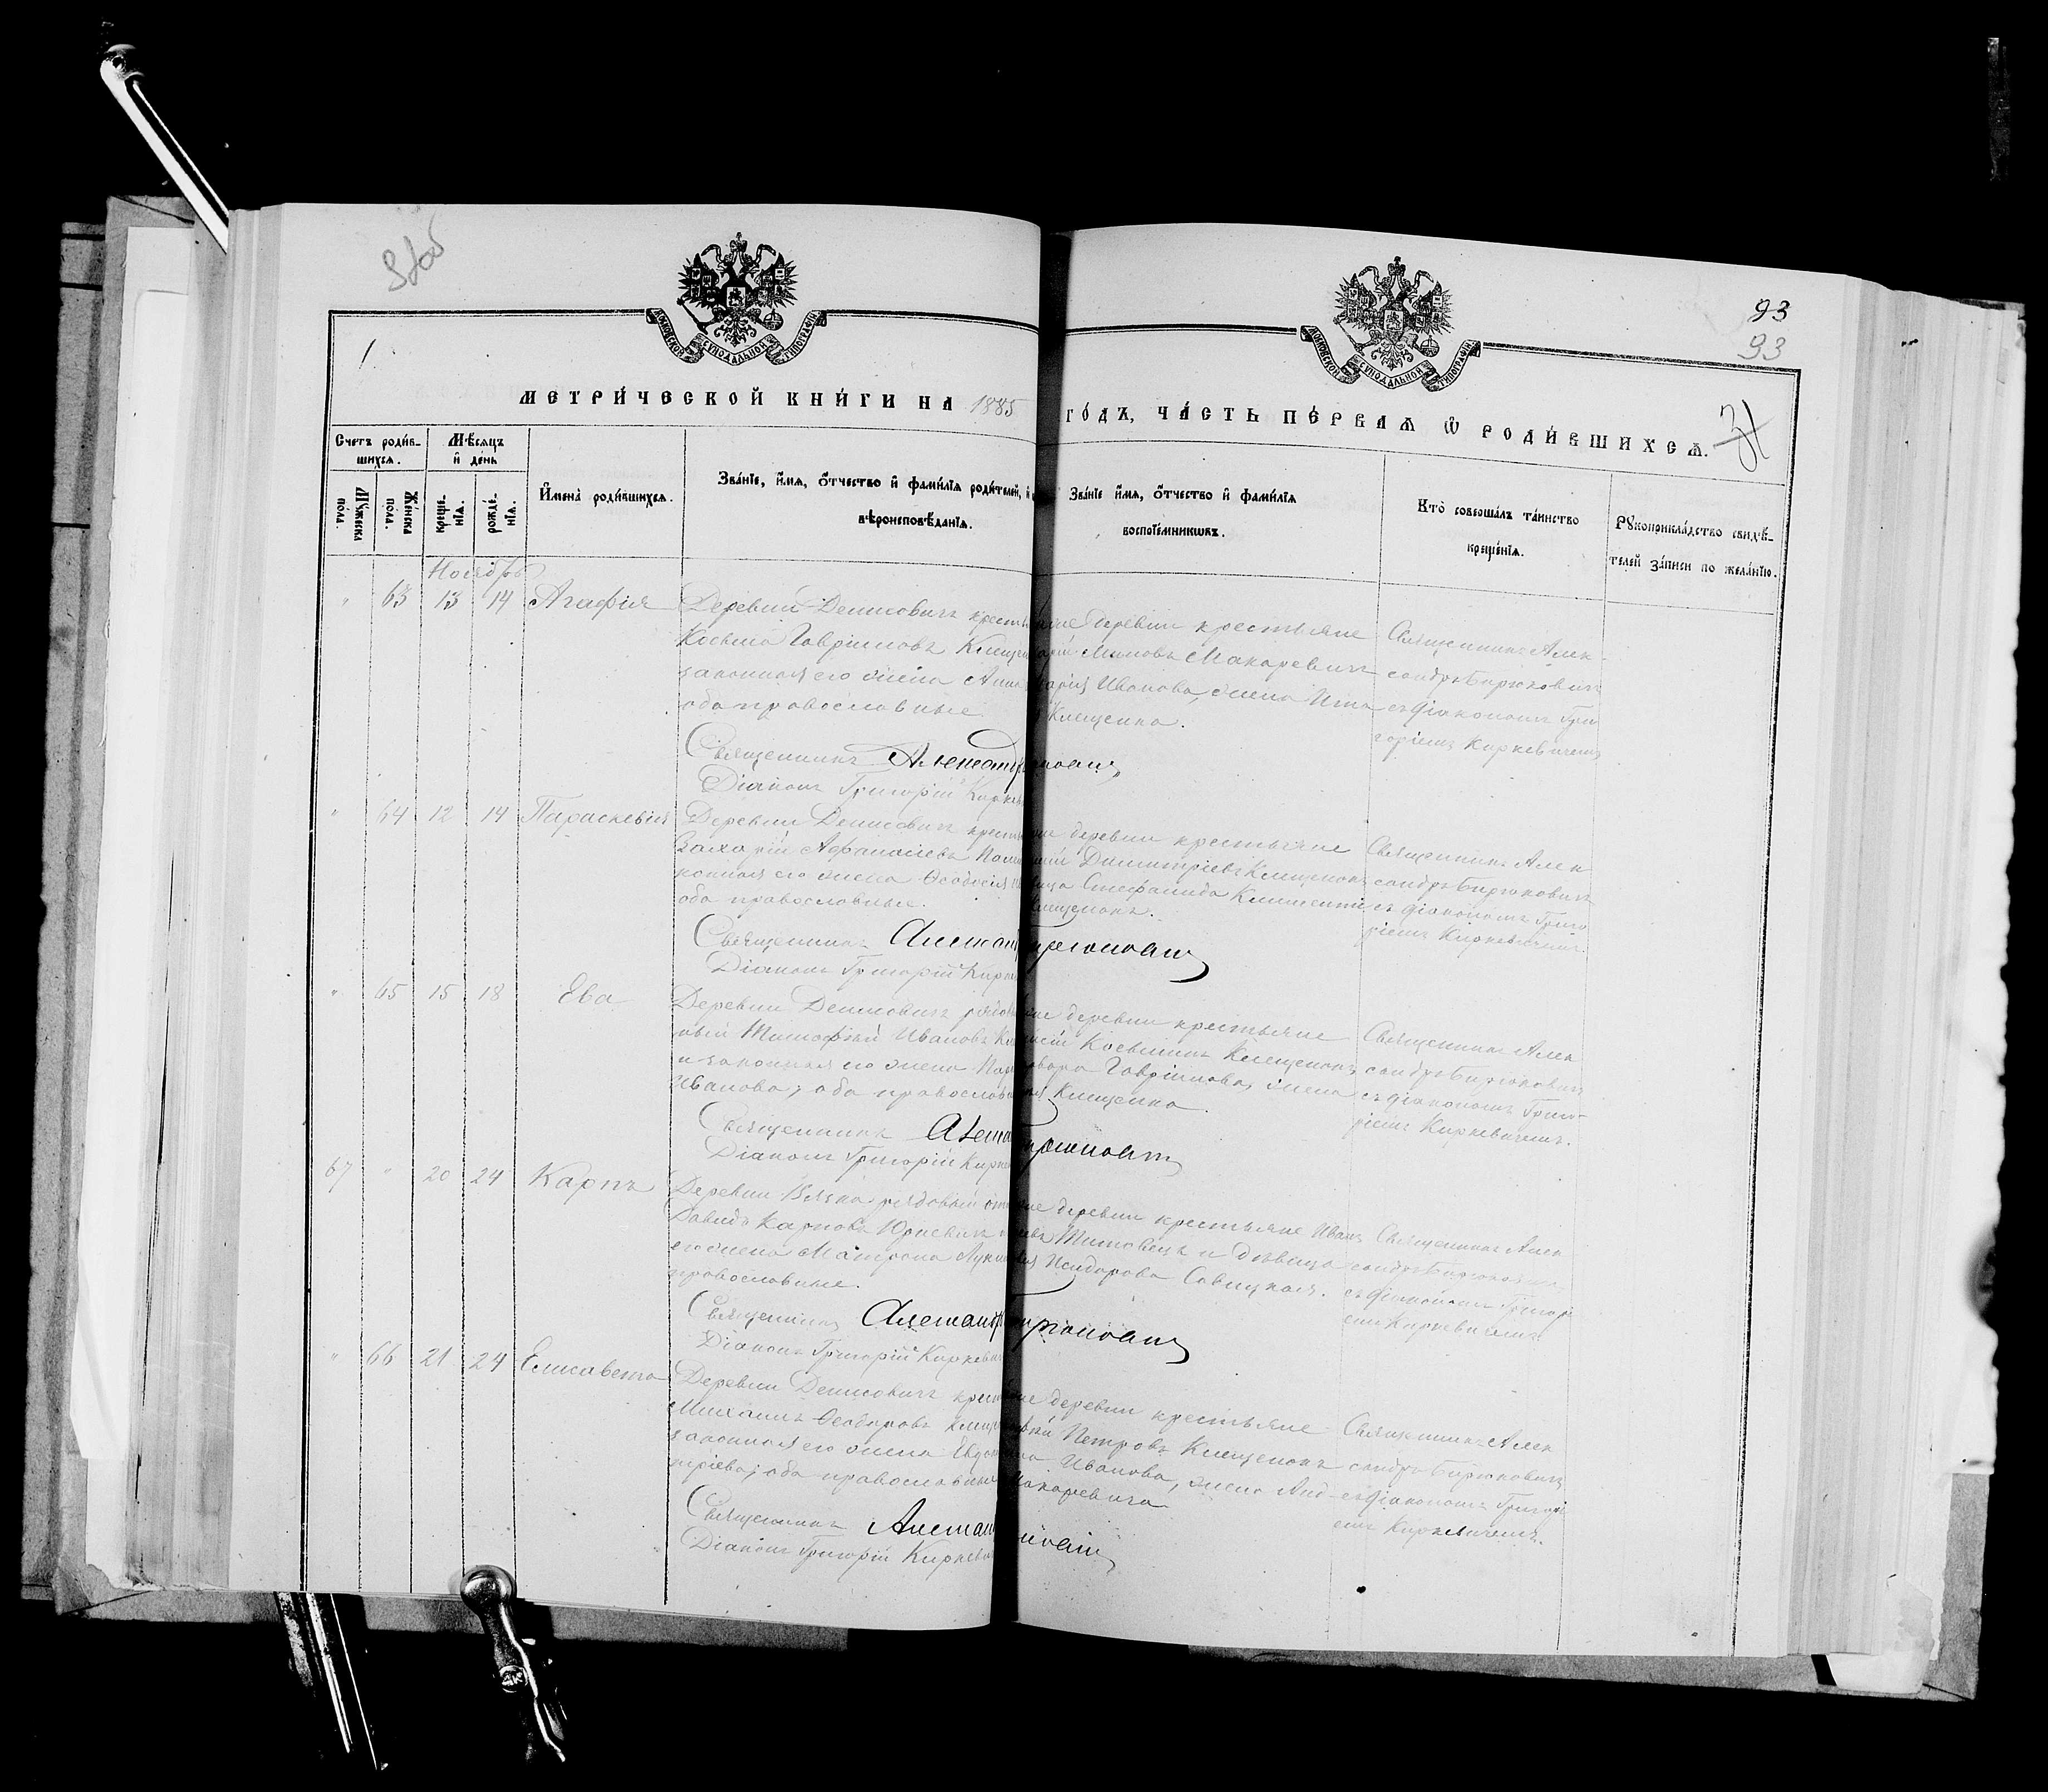 93
93
1.
МОСКОВСКОЙ СѴНОДАЛЬНОЙ ТИПОГРАФІИ
МОСКОВСКОЙ СѴНОДАЛЬНОЙ ТИПОГРАФІИ
МЕТРИ́ЧЕСКОЙ КНИ́ГИ НА 1885 ГО́ДЪ, ЧА́СТЬ ПЕ́РВАѦ Ѿ РОДИ́ВШИХСѦ.
31
Счетъ роди́вшихсѧ.
Мѣсѧцъ и҆ де́нь
Мꙋ́жеска пола̀.
Же́нска пола̀.
креще́нїѧ.
рожде́нїѧ.
И҆мена̀ роди́вшихсѧ.
Зва́нїе, и҆́мѧ, ѻ҆́тчество и҆ фами́лїѧ роди́телей, и҆
вѣроисповѣ́данїѧ.
Зва́нїе и҆́мѧ, ѻ҆́тчество и҆ фами́лїѧ
воспрїе́мникѡвъ.
Кто̀ соверша́лъ та́инство
креще́нїѧ.
Рꙋкоприкла́дство свидѣ́-
телей за́писи по жела́нїю.
Ноябрь
" 63 13 14 Агафія
Деревни Денисовичъ крестья
Косьма Гавріиловъ Клещен
законная его жена Анна
оба православные
Священникъ Александ
Діаконъ Григорій Кирке
деревни крестьяне
Миновъ Макаревичъ
Иванова, жена Игна
Клещенка.
Священникъ Алек-
сандръ Бирюковичъ
съ діакономъ Гри
горіемъ Киркевичемъ
" 64 12 14 Параскевія
Деревни Денисовичъ крестья
Захарій Афанасіевъ
конная его жена Ѳеодосія
оба православные.
Священникъ
Діаконъ Григорій Кирке
деревни крестьяне
Димитріевъ Клещенокъ
Стефанида Климентіе
Клещенокъ.
Священникъ Алек
сандръ Бирюковичъ
съ діакономъ Григо
ріемъ Киркевичемъ.
" 65 15 18 Ева
Деревни Денисовичъ рядо
вый Тимофей Ивановъ
и законная его жена
Иванова, оба православ
Священникъ
Діаконъ Григорій Кирке
деревни крестьяне
Косьминъ Клещенокъ
Гавріилова, жена
Клещенка.
Священникъ Алек
сандръ Бирюковичъ
съ діакономъ Григо-
ріемъ Киркевичемъ.
67 " 20 24 Карпъ
Деревни рядовый
Давидъ Карповъ Юркевичъ
его жена Матрона
православные.
Священникъ
Діаконъ Григорій Киркевич
деревни крестьяне Иванъ
Титовецъ и дѣвица
Исидорова Савицкая.
Священникъ Алек
сандръ Бирюкович
съ діакономъ Григорі
емъ Киркевичемъ
" 66 21 24 Елисавета
Деревни Денисовичъ крест
Михаилъ Ѳеодоровъ Клещ
законная его жена
тріева, оба православны
Священникъ
Діаконъ Григорій Киркевич
деревни крестьяне
Петровъ Клещенокъ
Иванова, жена Анд-
Макаревича
Священникъ Алек
сандръ Бирюковичъ
съ діакономъ Григорі
емъ Киркевичемъ.